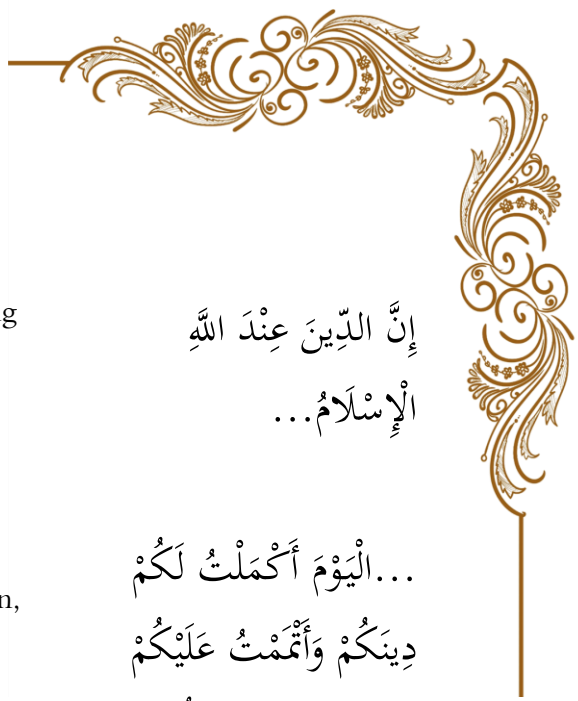 إِنَّ الدِّينَ عِنْدَ اللَّهِ
الْإِسْلَامُ...
...الْيَوْمَ أَكْمَلْتُ لَكُمْ
دِينَكُمْ وَأَتْمَمْتُ عَلَيْكُمْ